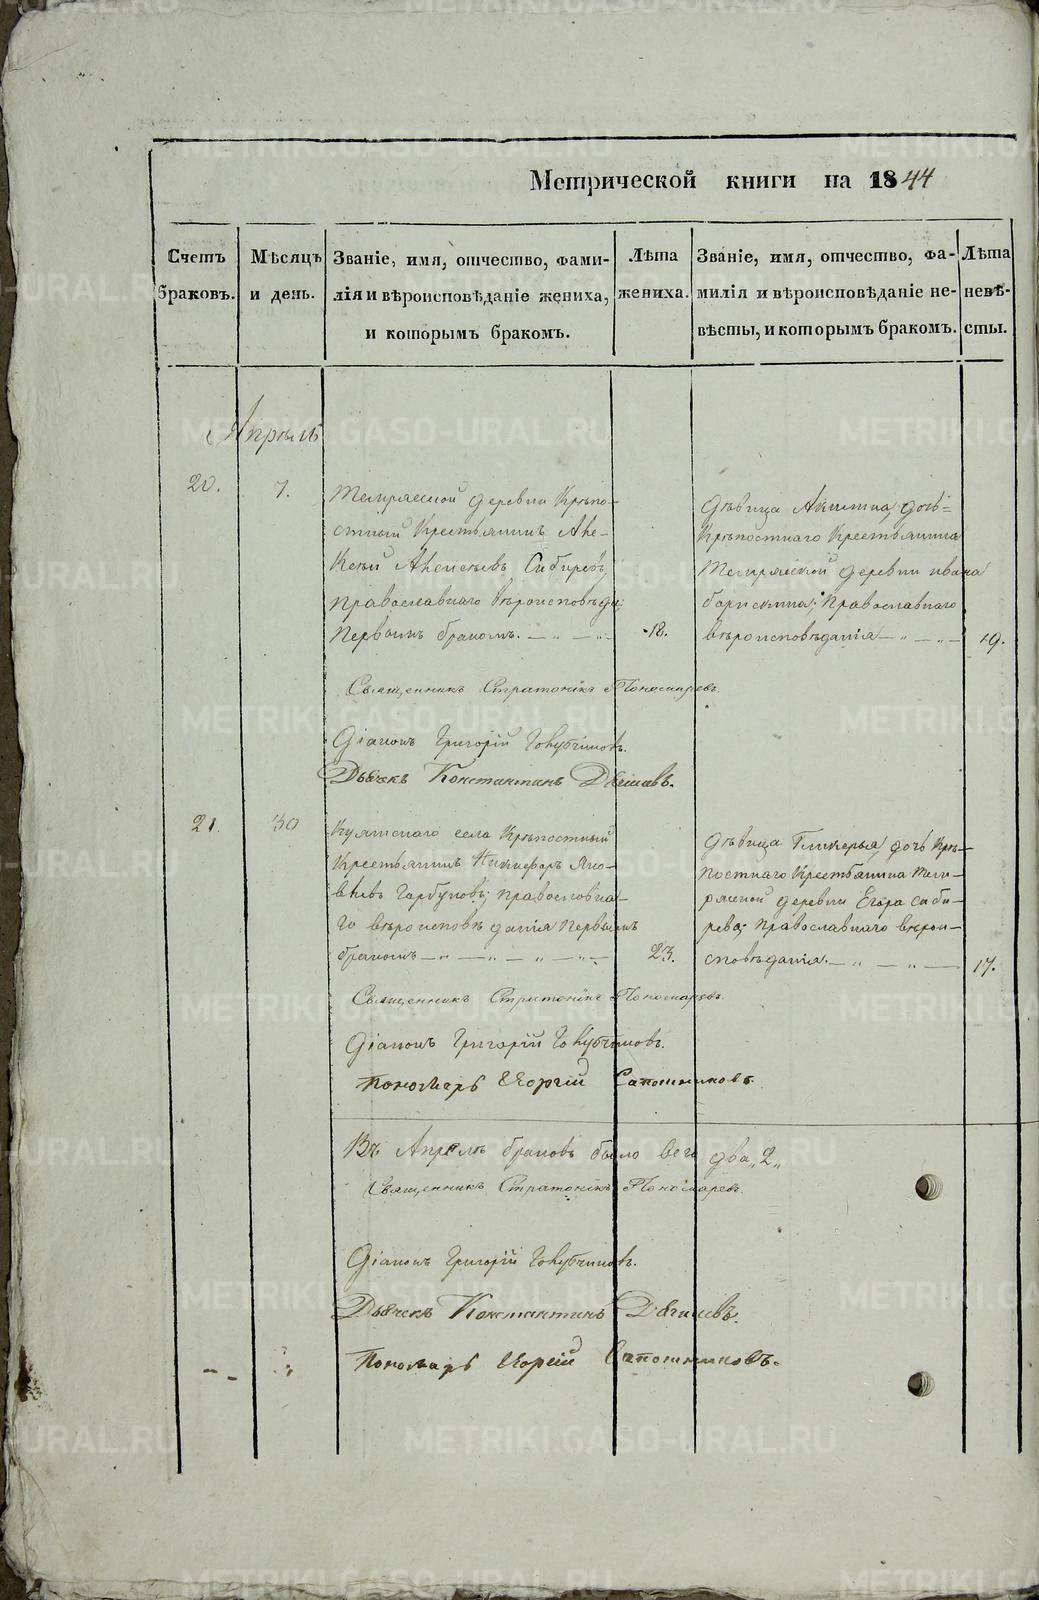 Метрической книги на 1844
Счетъ браковъ.
Мѣсяцъ и день.
Званіе, имя, отчество, фами-
лія и вѣроисповѣданіе жениха,
и которымъ бракомъ.
Лѣта
жениха.
Званіе, имя, отчество, фа-
милія и вѣроисповѣданіе не-
вѣсты, и которымъ бракомъ.
Лѣта
невѣ-
сты.
Апрѣль
20. 7.
деревни Крѣпо-
стный Крестьянинъ Але-
ксѣй Алексѣевъ Сибиревъ,
православнаго вѣроисповѣда:
первымъ бракомъ. — „ — „ —
18.
Дѣвица Акилина, дочь
Крѣпостнаго Крестьянина
деревни Ивана
православнаго
вѣроисповѣданія — „ — „ —
19.
Священникъ Стратоникъ Пономаревъ.
Діаконъ Григорій
Дьячекъ Константинъ
21. 30
села Крѣпостный
Крестьянинъ Никифоръ Яко-
влевъ Горбуновъ; православна-
го вѣроисповѣданія первымъ
бракомъ — „ — „ — „ — „ —
23.
Дѣвица Гликерья, дочь Крѣ-
постнаго Крестьянина
деревни Егора Сиби-
рева; православнаго вѣрои-
сповѣданія. — „ — „ —
17.
Священникъ Стратоникъ Пономаревъ.
Діаконъ Григорій
Пономарь Георгій Сапожниковъ.
Въ Апрѣлѣ браковъ было всего два „2„
Священникъ Стратоникъ Пономаревъ.
Діаконъ Григорій
Дьячекъ Константинъ
Пономарь Георгій Сапожниковъ.
METRIKI.GASO-URAL.RU